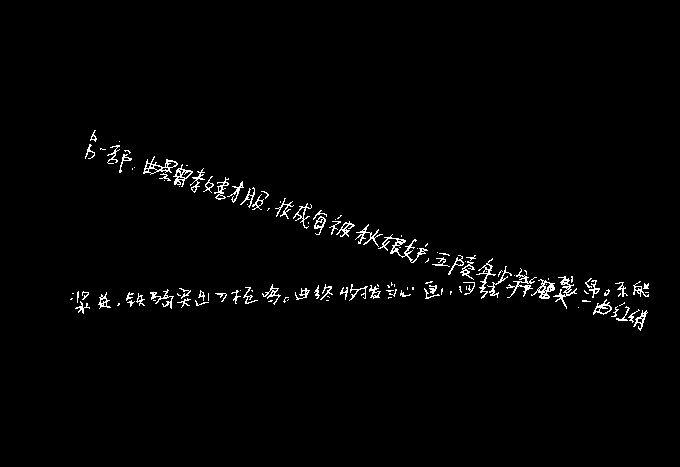 第一部,曲罢曾教善才服,妆成每被秋娘妒,五陵年少争缠头,一曲红绡
浆迸,铁骑突出刀枪鸣。曲终收拨当心画,四弦一声如裂帛。东船